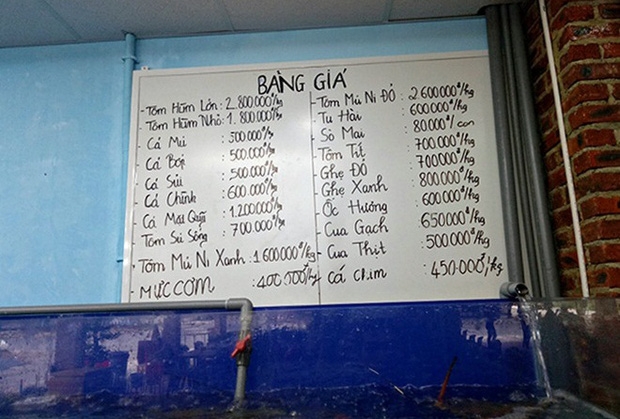 BẢNG GIÁ
- Tôm Hùm Lớn : 2.800.000đ/kg
- Tôm Hùm Nhỏ : 1.800.000đ/kg
- Cá Mú : 500.000đ/kg
- Cá Bớp : 500.000đ/kg
- Cá Sủi : 500.000đ/kg
- Cá Chình : 600.000đ/kg
- Cá Mao Quỷ : 1.200.000đ/kg
- Tôm Sú Sống : 700.000đ/kg
- Tôm Mũ Ni Xanh : 1.600000đ/kg
- MỰC CƠM : 400.000đ/kg
- Tôm Mũ Ni ĐỎ : 2600000đ/kg
- Tu Hài : 600000đ/kg
- Sò Mai : 80.000đ/con
- Tôm Tít : 700000đ/kg
- Ghẹ Đỏ : 700000đ/kg
- Ghẹ Xanh : 800000đ/kg
- Ốc Hương : 600000đ/kg
- Cua Gạch : 650000đ/kg
- Cua Thịt : 500000đ/kg
- Cá chim : 450.000đ/kg